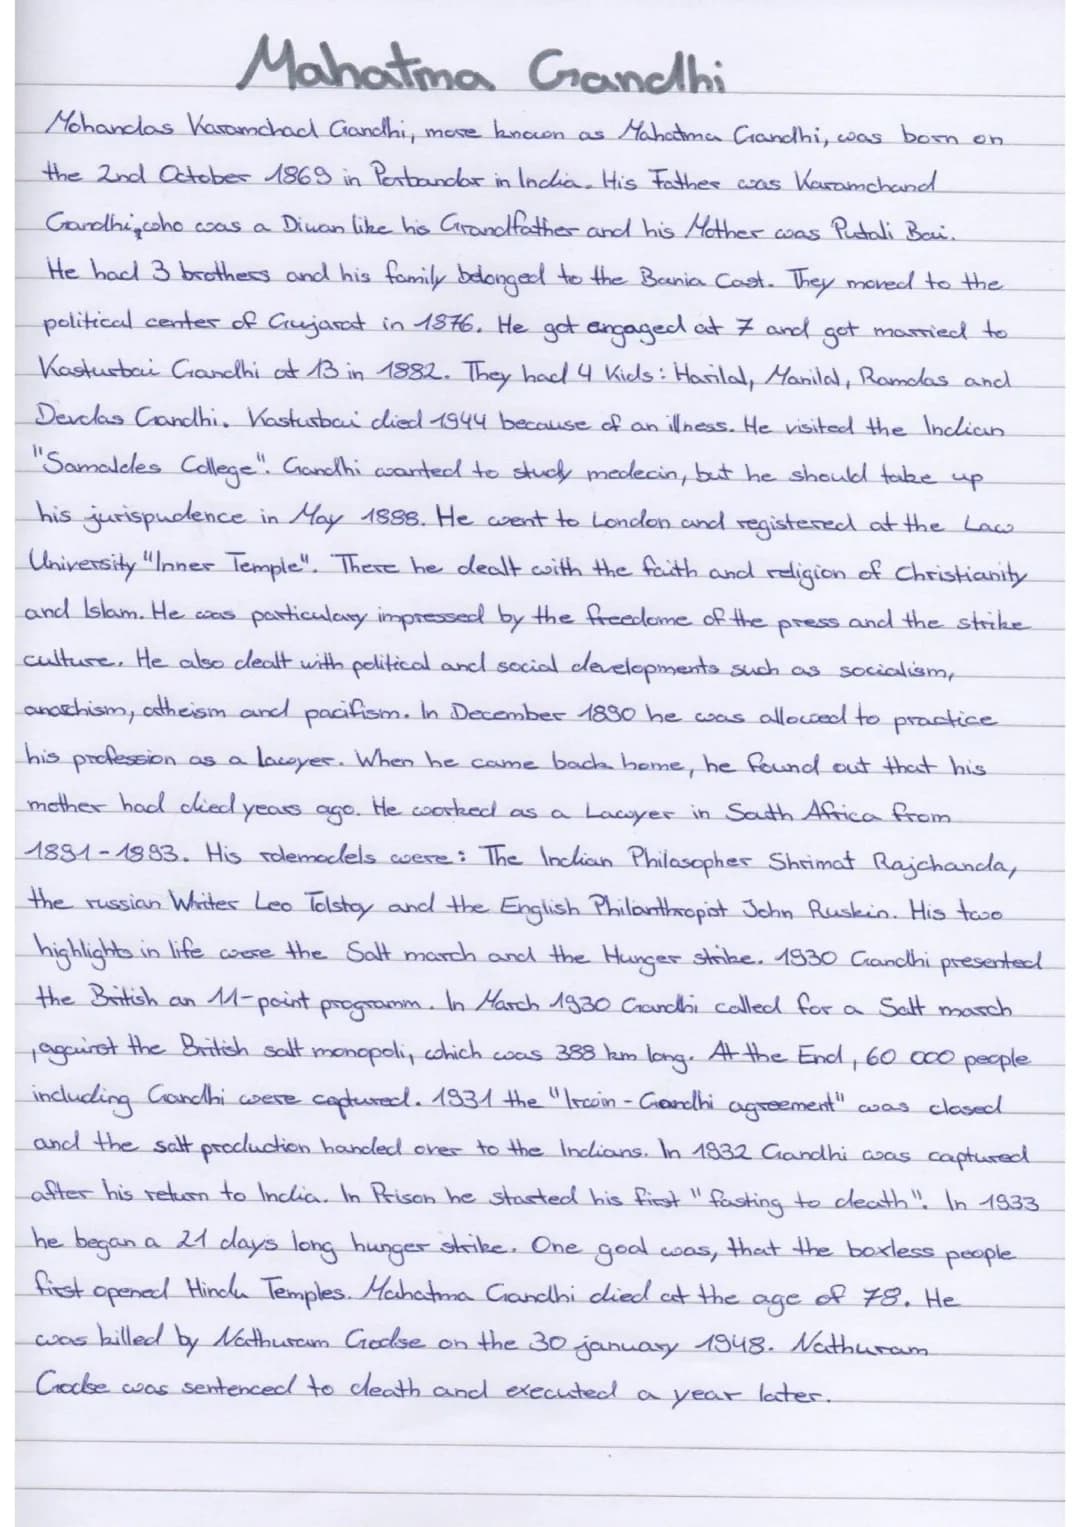 Mahatma Gandhi
Mohandas Karamchad Gandhi, more known as Mahatma Gandhi, was born on
the 2nd October 1869 in Porbandar in India. His Father was Karamchand
Gandhi, who was a Diwan like his Grandfather and his Mother was Putali Bai.
He had 3 brothers and his family belonged to the Bania Cast. They moved to the
political center of Gujarat in 1876. He got engaged at 7 and got married to
Kasturbai Gandhi at 13 in 1882. They had 4 Kids: Harilal, Manilal, Ramdas and
Devdas Gandhi. Kasturbai died 1944 because of an illness. He visited the Indian
"Samaldes College". Gandhi wanted to study medecin, but he should take up
his jurispudence in May 1888. He went to London and registered at the Law
University "Inner Temple". There he dealt with the faith and religion of Christianity
and Islam. He was particulary impressed by the freedome of the press and the strike
culture. He also dealt with political and social developments such as socialism,
anarchism, atheism and pacifism. In December 1890 he was allowed to practice
his profession as a lawyer. When he came back home, he found out that his
mother had died years ago. He worked as a Lawyer in South Africa from
1891-1893. His rolemodels were: The Indian Philosopher Shrimat Rajchanda,
the russian Writer Leo Tolstoy and the English Philanthropist John Ruskin. His two
highlights in life were the Salt march and the Hunger strike. 1930 Gandhi presented
the British an 11-point programm. In March 1930 Gandhi called for a Salt march
, against the British salt monopoli, which was 388 km long. At the End, 60 000 people
including Gandhi were captured. 1931 the "Irwin - Gandhi agreement" was closed
and the salt production handed over to the Indians. In 1932 Gandhi was captured
after his return to India. In Prison he started his first "fasting to death". In 1933
he began a 21 days long hunger strike. One goal was, that the boxless people
first opened Hindu Temples. Mahatma Gandhi died at the age of 78. He
was killed by Nathuram Godse on the 30 january 1948. Nathuram
Godse was sentenced to death and executed a year later.